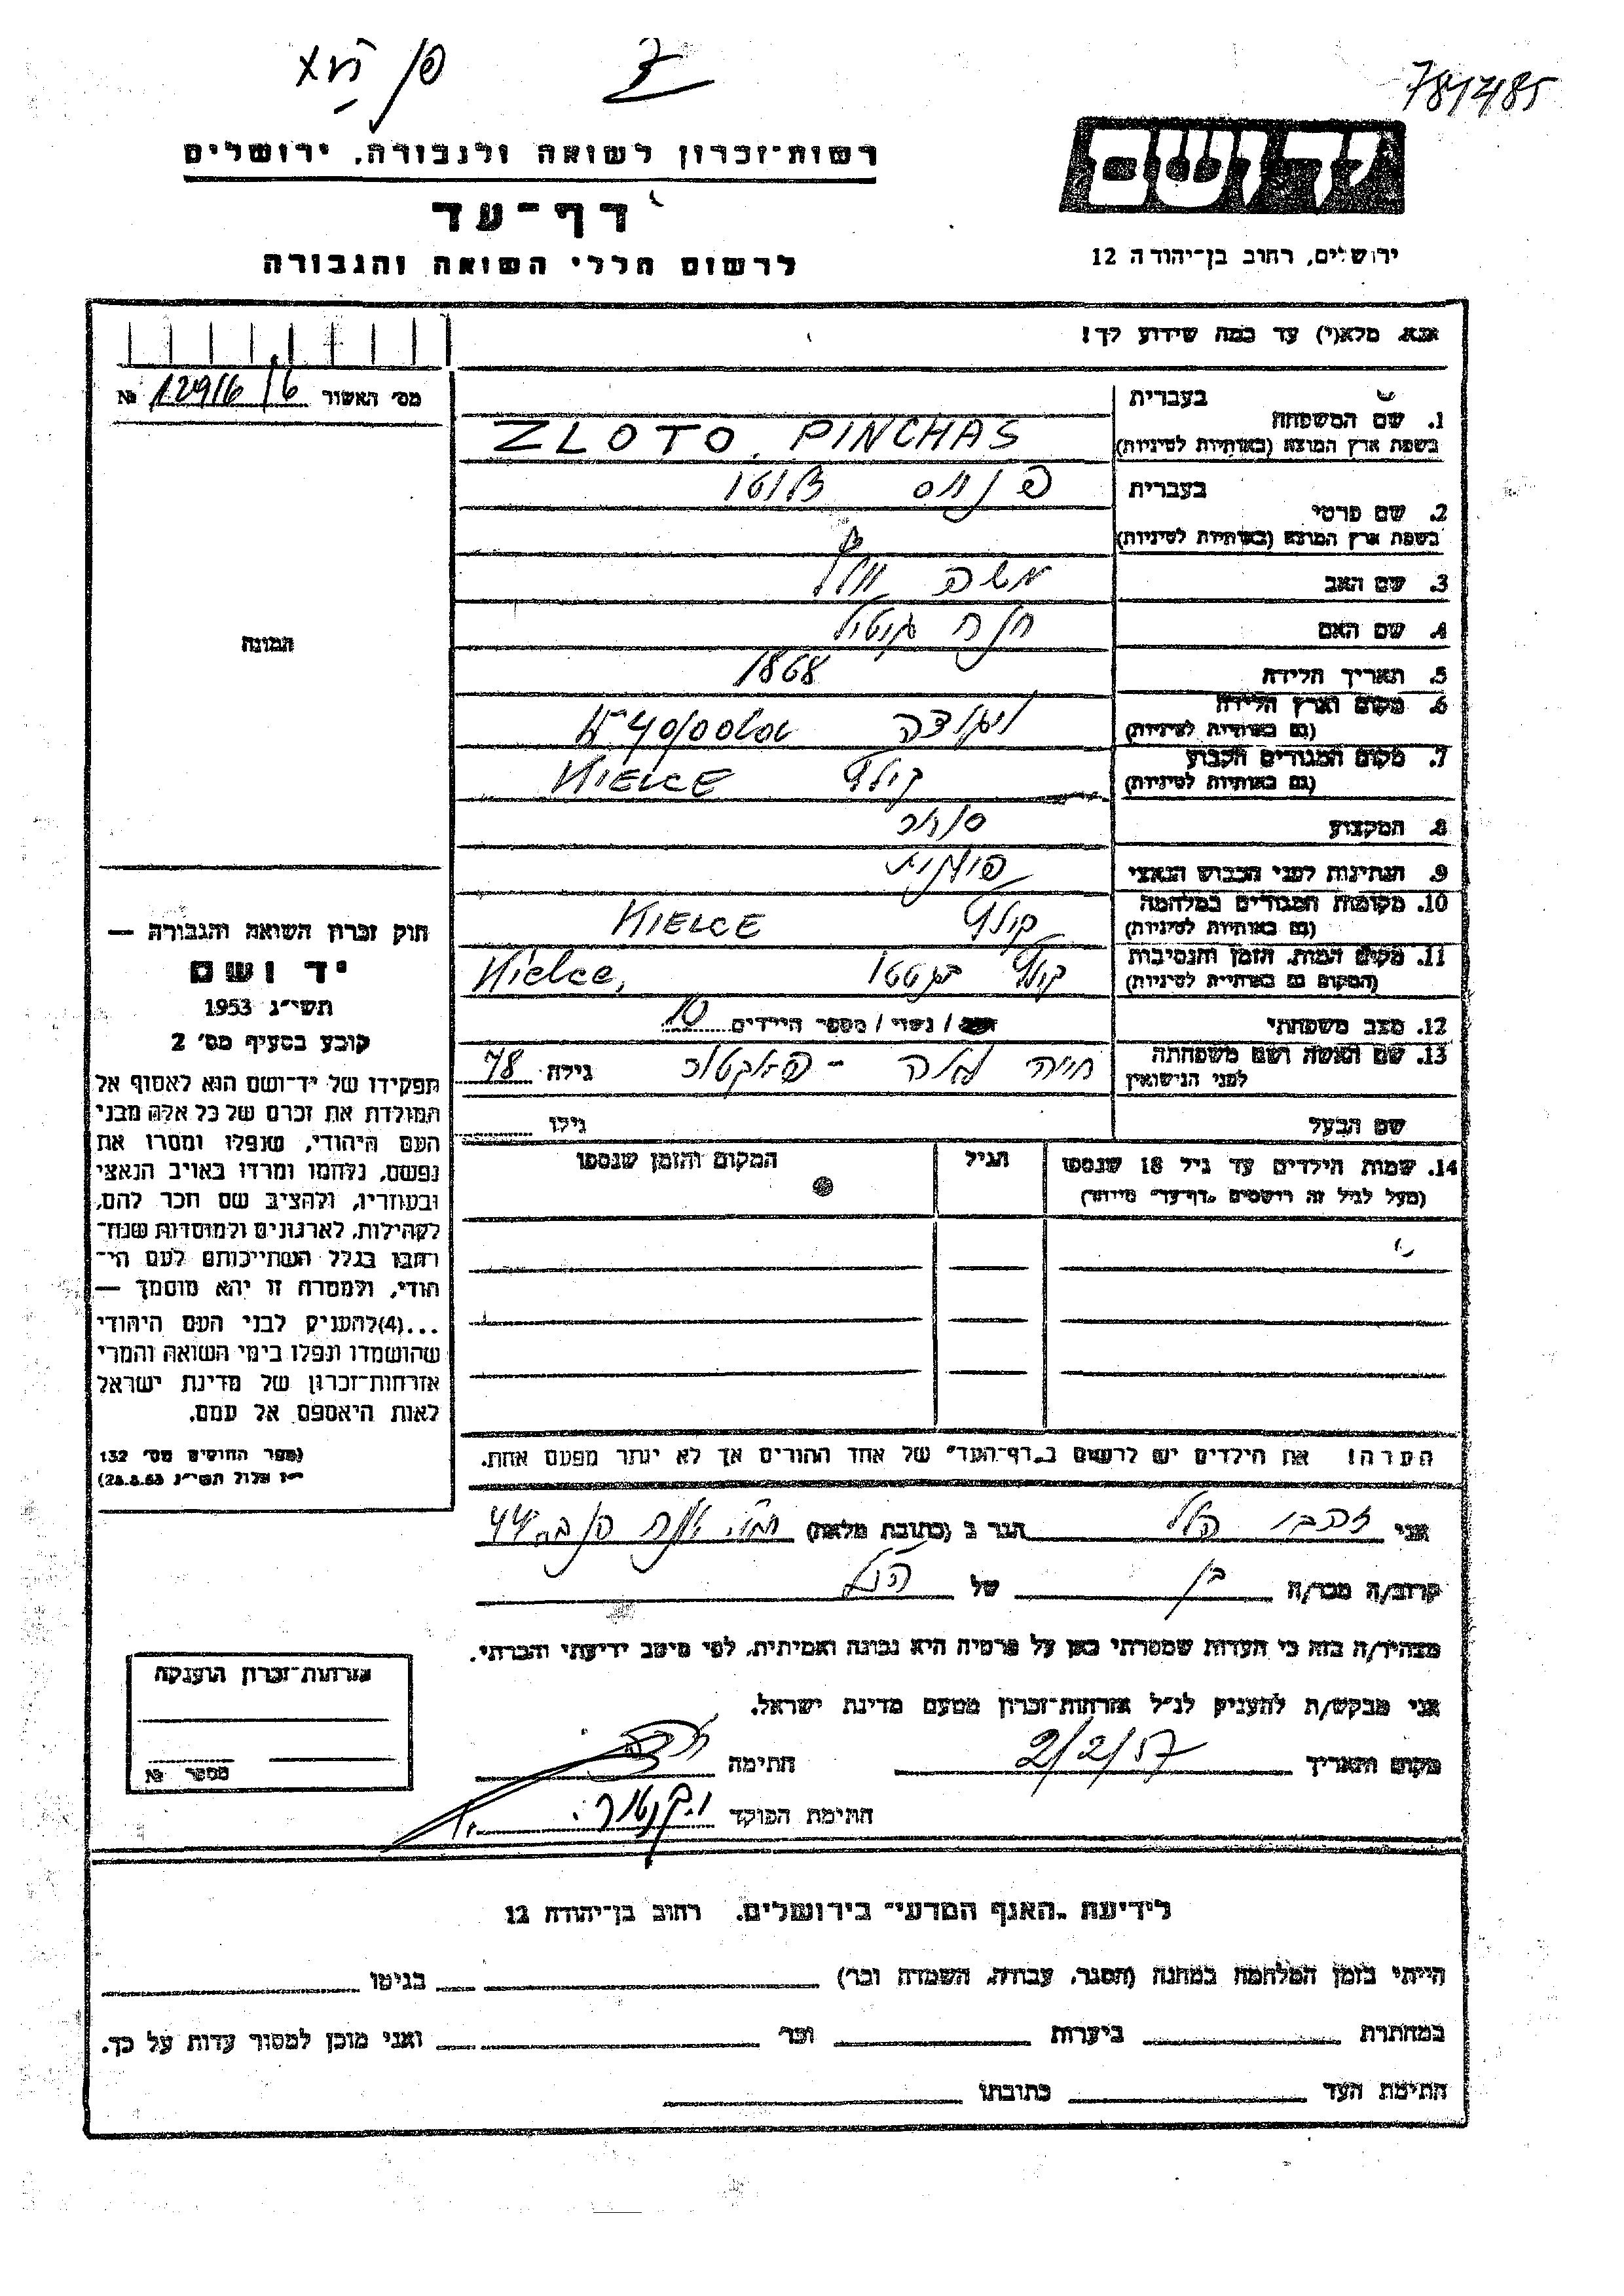 781485
יד ושם
ירושלים, רחוב בן־יהודה 12
רשות־זכרון לשואה ולגבורה, ירושלים
דף־עד
לרשום חללי השואה והגבורה
אנא, מלא(י) עד כמה שידוע לך!
מס׳ האשור 12916/6 №
בעברית
1. שם המשפחה
בשפת ארץ המוצא (באותיות לטיניות) ZLOTO, PINCHAS
בעברית פנחס זלוטו
2. שם פרטי
בשפת ארץ המוצא (באותיות לטיניות)
3. שם האב משה
4. שם האם חנה
5. תאריך הלידה 1868
6. מקום וארץ הלידה
(גם באותיות לטיניות)
7. מקום המגורים הקבוע KIELCE
(גם באותיות לטיניות)
8. המקצוע סוחר
9. הנתינות לפני הכבוש הנאצי פולנית
10. מקומות המגורים במלחמה KIELCE
(גם באותיות לטיניות)
11. מקום המות, הזמן והנסיבות בגטו Kielce,
(המקום גם באותיות לטיניות)
12. מצב משפחתי / נשוי / מספר הילדים 10
13. שם האשה ושם משפחתה חיה גילה 78
לפני הנישואין
שם הבעל גילו
14. שמות הילדים עד גיל 18 שנספו הגיל המקום והזמן שנספו
(מעל לגיל זה רושמים „דף־עד” מיוחד)
הערה! את הילדים יש לרשום ב„דף־העד” של אחד ההורים אך לא יותר מפעם אחת.
תמונה
חוק זכרון השואה והגבורה —
יד ושם
תשי״ג 1953
קובע בסעיף מס׳ 2
תפקידו של יד־ושם הוא לאסוף אל
המולדת את זכרם של כל אלה מבני
העם היהודי, שנפלו ומסרו את
נפשם, נלחמו ומרדו באויב הנאצי
ובעוזריו, ולהציב שם וזכר להם,
לקהילות, לארגונים ולמוסדות שנח־
רבו בגלל השתייכותם לעם הי־
הודי, ולמטרה זו יהא מוסמך —
...(4)להעניק לבני העם היהודי
שהושמדו ונפלו בימי השואה והמרי
אזרחות־זכרון של מדינת ישראל
לאות היאספם אל עמם.
(ספר החוקים מס׳ 132
י״ז אלול תשי״ג 28.8.53)
אני זהבי הלל הגר ב (כתובת מלאה) 44
קרוב/ה מכר/ה בן של הנ״ל
מצהיר/ה בזה כי העדות שמסרתי כאן על פרטיה היא נכונה ואמיתית, לפי מיטב ידיעתי והכרתי.
אני מבקש/ת להעניק לנ״ל אזרחות־זכרון מטעם מדינת ישראל.
מקום ותאריך 2/2/57 חתימה
חתימת הפוקד
אזרחות־זכרון הוענקה
מספר №
לידיעת „האגף המדעי” בירושלים, רחוב בן־יהודה 12
הייתי בזמן המלחמה במחנה (הסגר, עבודה, השמדה וכו׳) בגיטו
במחתרת ביערות וכו׳ ואני מוכן למסור עדות על כך.
חתימת העד כתובתו